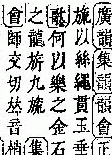 廣韻集韻韻會
旒以絲繩貫玉垂
何以樂之金石
之龍旂九旒集
會師交切𠀤音梢